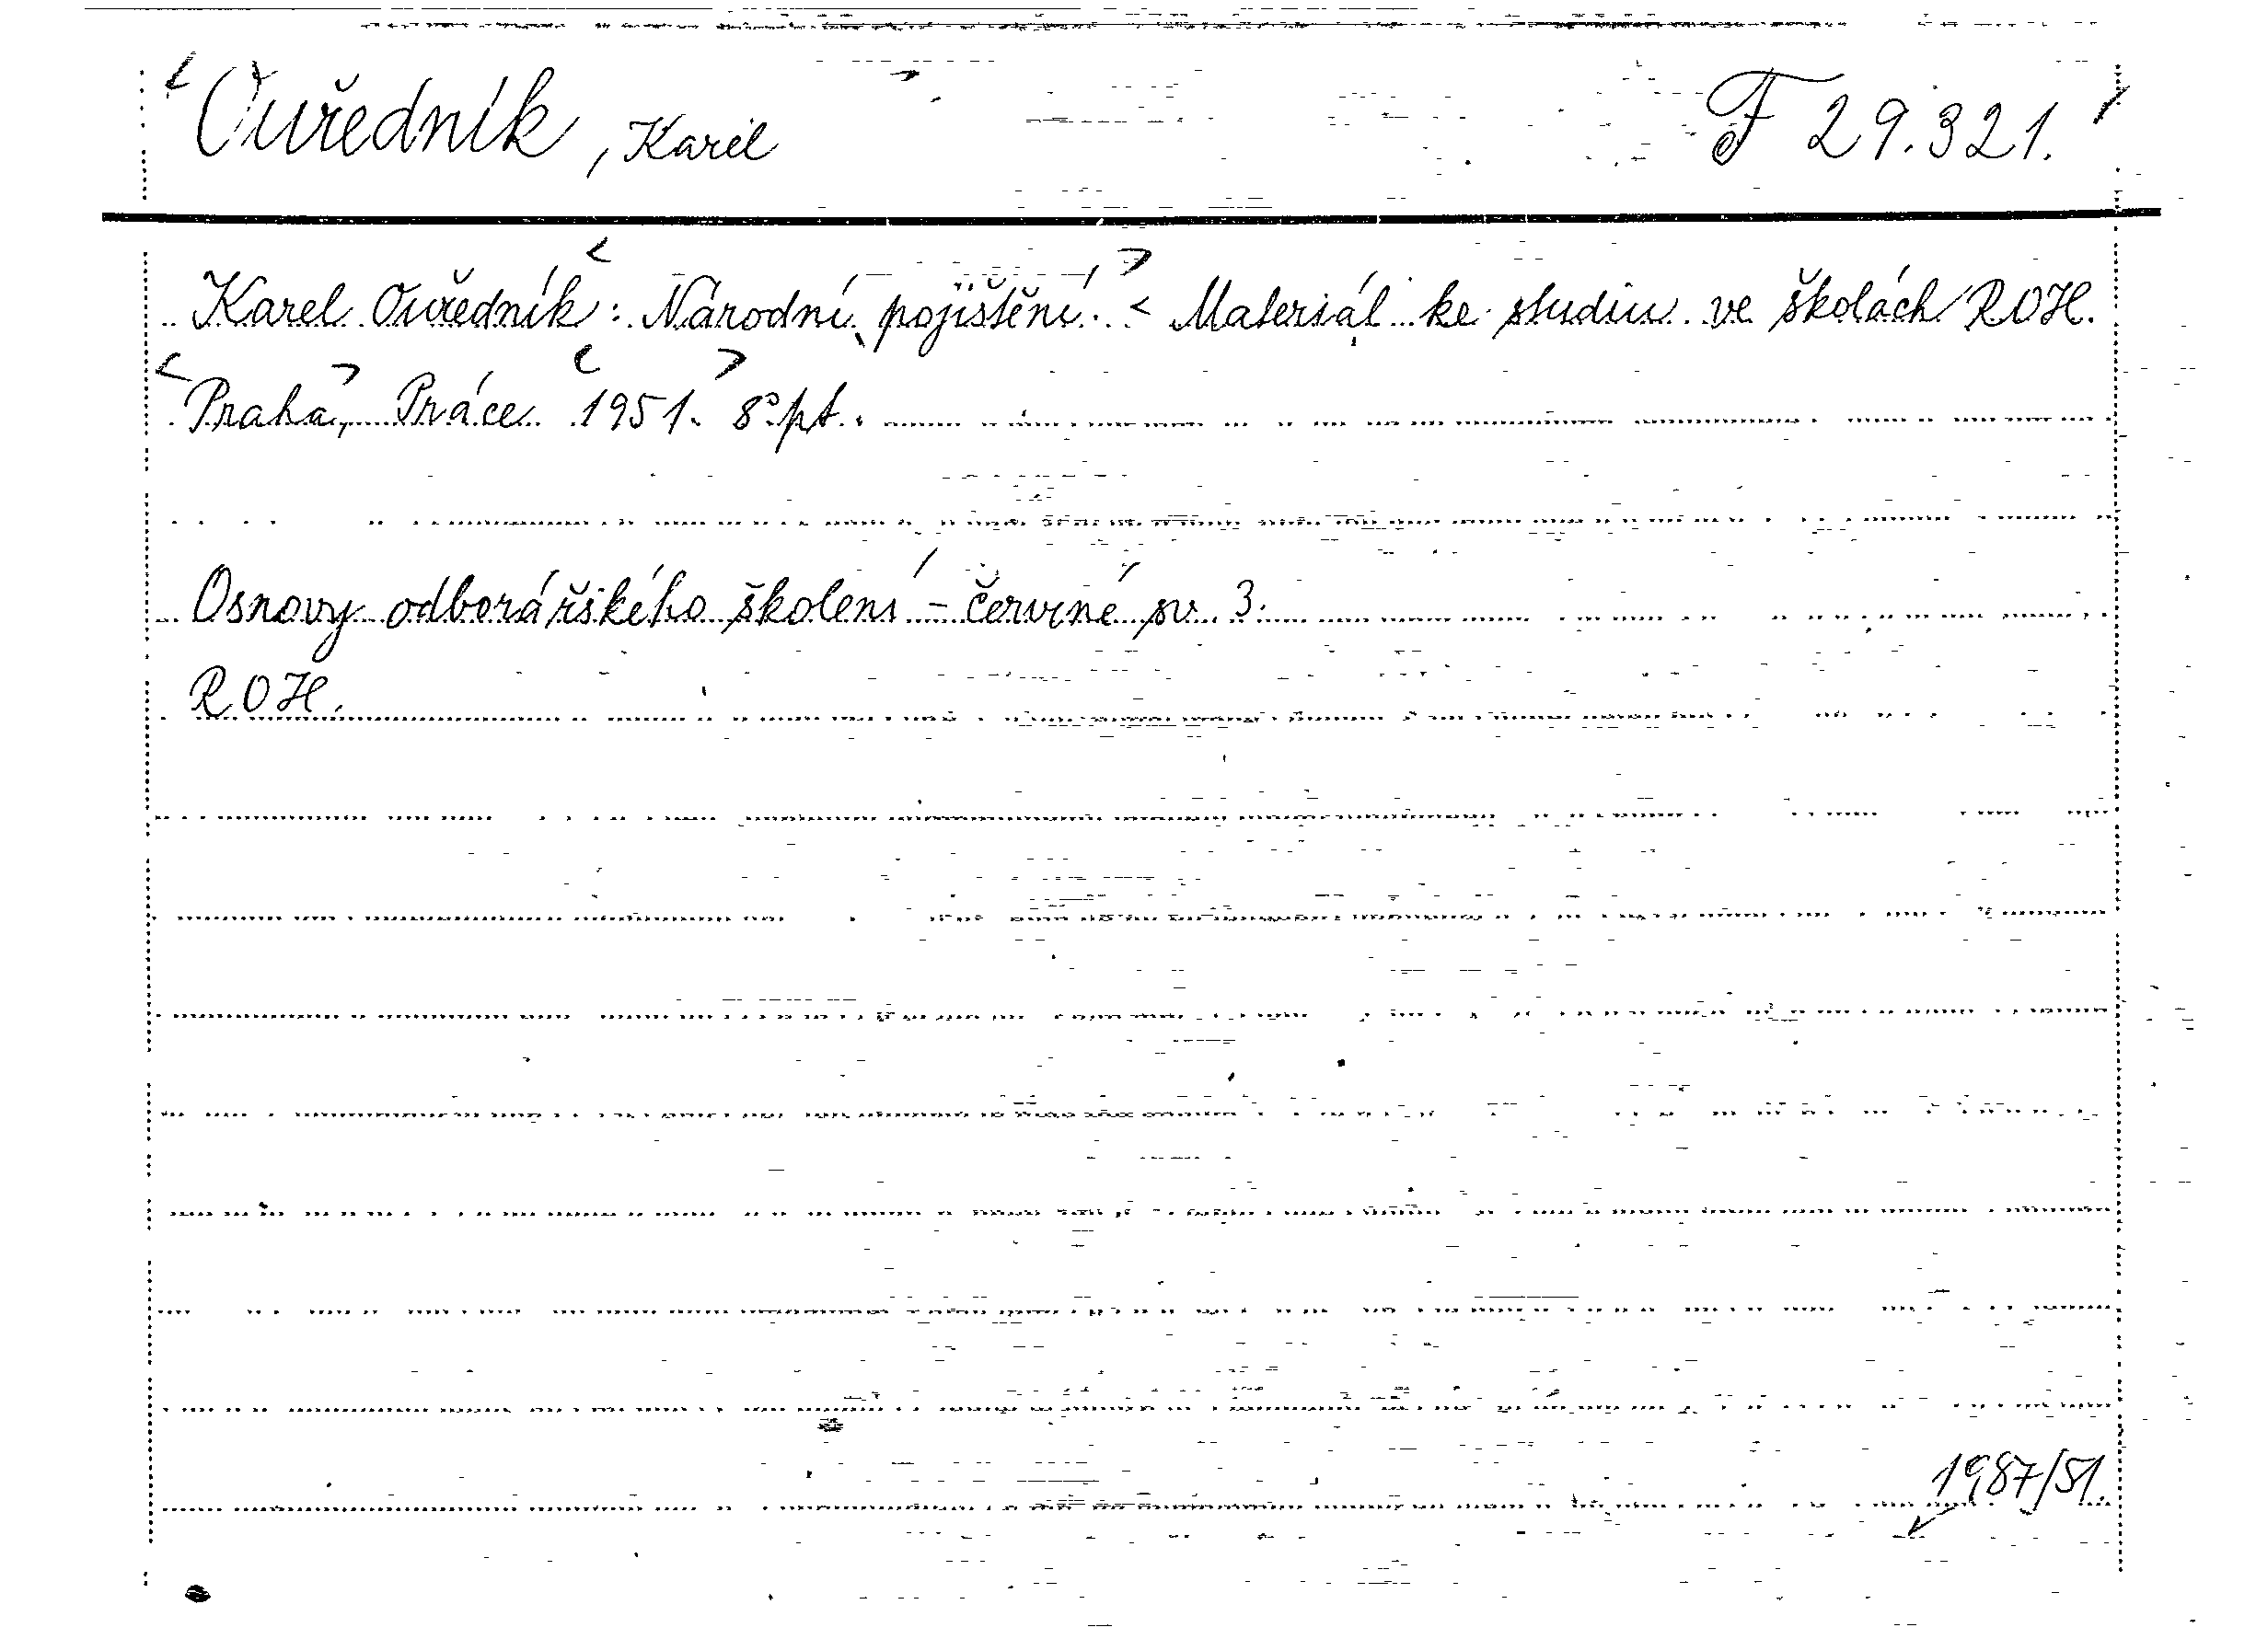 Ouředník, Karel F 29.321.
Karel Ouředník: Národní pojištění. Materiál ke studiu ve školách ROH.
Praha, Práce 1951. 8° pt.
Osnovy odborářského školení - červené sv. 3.
ROH.
1987/51.